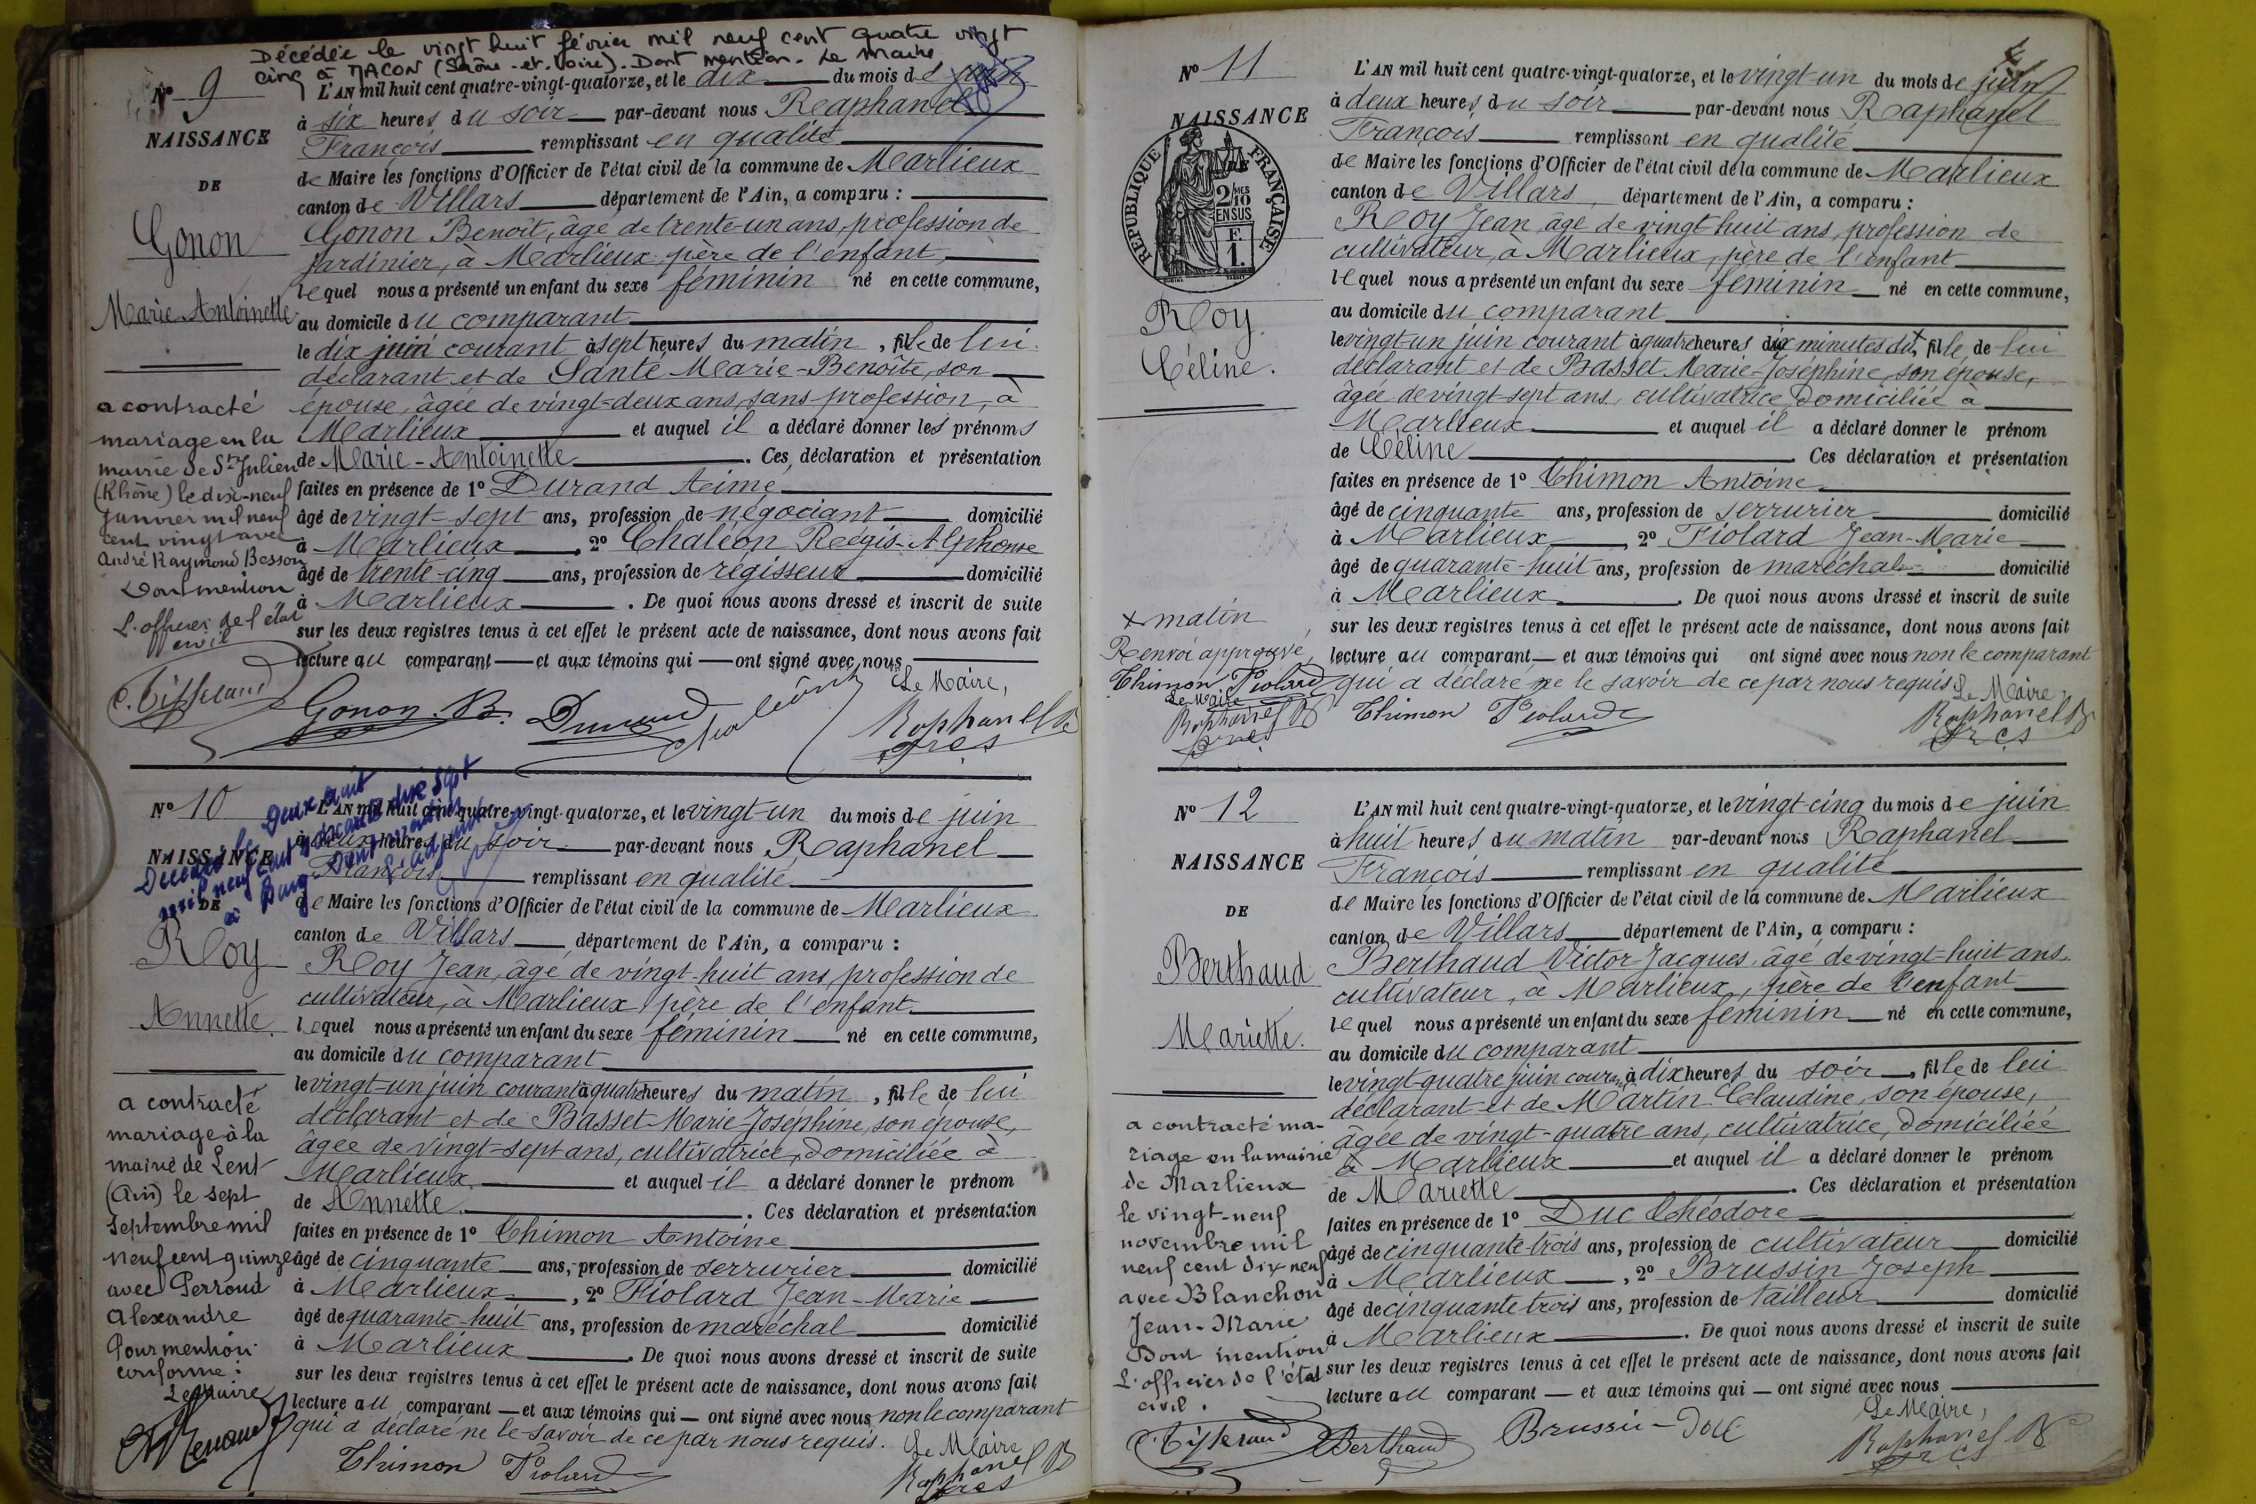 Décédée le vingt huit février mil neuf cent quatre vingt
cinq à MACON (Saône-et-Loire). Dont mention. Le Maire
N° 9
NAISSANCE
DE
Gonon
Marie Antoinette
a contracté
mariage en la
mairie de St Julien
(Rhône) le dix-neuf
janvier mil neuf
cent vingt avec
André Raymond Besson
Dont mention
L'officier de l'état
civil
C. Tisserand
L'AN mil huit cent quatre-vingt-quatorze, et le dix du mois de juin
à six heures du soir par-devant nous Raphanel
François remplissant en qualité
de Maire les fonctions d'Officier de l'état civil de la commune de Marlieux
canton de Villars département de l'Ain, a comparu :
Gonon Benoît, âgé de trente-un ans, profession de
jardinier, à Marlieux, père de l'enfant,
lequel nous a présenté un enfant du sexe féminin né en cette commune,
au domicile du comparant
le dix juin courant à sept heures du matin, fille de lui
déclarant et de Santé Marie-Benoîte, son
épouse, âgée de vingt-deux ans, sans profession, à
Marlieux et auquel il a déclaré donner les prénoms
de Marie-Antoinette. Ces déclaration et présentation
faites en présence de 1° Durand Aimé
âgé de vingt-sept ans, profession de négociant domicilié
à Marlieux, 2° Chaléon Régis-Alphonse
âgé de trente-cinq ans, profession de régisseur domicilié
à Marlieux. De quoi nous avons dressé et inscrit de suite
sur les deux registres tenus à cet effet le présent acte de naissance, dont nous avons fait
lecture au comparant et aux témoins qui ont signé avec nous
Le Maire,
Gonon. B. Durand Chaléon Raphanel
N° 10
NAISSANCE
DE
Roy
Annette
Décédée le deux août
mil neuf cent soixante dix sept
à Bourg Dont mention
L'adjoint
a contracté
mariage à la
mairie de Lent
(Ain) le sept
septembre mil
neuf cent quinze
avec Perroud
Alexandre
Pour mention
conforme :
Le Maire
L'AN mil huit cent quatre-vingt-quatorze, et le vingt-un du mois de juin
à deux heures du soir par-devant nous Raphanel
François remplissant en qualité
de Maire les fonctions d'Officier de l'état civil de la commune de Marlieux
canton de Villars département de l'Ain, a comparu :
Roy Jean, âgé de vingt-huit ans, profession de
cultivateur, à Marlieux, père de l'enfant
lequel nous a présenté un enfant du sexe féminin né en cette commune,
au domicile du comparant
le vingt-un juin courant à quatre heures du matin, fille de lui
déclarant et de Basset Marie-Joséphine, son épouse,
âgée de vingt-sept ans, cultivatrice, domiciliée à
Marlieux et auquel il a déclaré donner le prénom
de Annette. Ces déclaration et présentation
faites en présence de 1° Thimon Antoine
âgé de cinquante ans, profession de serrurier domicilié
à Marlieux, 2° Fiolard Jean-Marie
âgé de quarante-huit ans, profession de maréchal domicilié
à Marlieux. De quoi nous avons dressé et inscrit de suite
sur les deux registres tenus à cet effet le présent acte de naissance, dont nous avons fait
lecture au comparant et aux témoins qui ont signé avec nous non le comparant
qui a déclaré ne le savoir de ce par nous requis. Le Maire
Thimon Fiolard Raphanel
N° 11
NAISSANCE
DE
REPUBLIQUE FRANÇAISE
2/10 MES
EN SUS
F.
1.
Roy
Céline.
x matin
Renvoi approuvé,
Thimon Fiolard
Le Maire
Raphanel
L'AN mil huit cent quatre-vingt-quatorze, et le vingt-un du mois de juin
à deux heures du soir par-devant nous Raphanel
François remplissant en qualité
de Maire les fonctions d'Officier de l'état civil de la commune de Marlieux
canton de Villars département de l'Ain, a comparu :
Roy Jean, âgé de vingt-huit ans, profession de
cultivateur, à Marlieux, père de l'enfant
lequel nous a présenté un enfant du sexe féminin né en cette commune,
au domicile du comparant
le vingt-un juin courant à quatre heures dix minutes du x, fille de lui
déclarant et de Basset Marie-Joséphine, son épouse,
âgée de vingt-sept ans, cultivatrice, domiciliée à
Marlieux et auquel il a déclaré donner le prénom
de Céline. Ces déclaration et présentation
faites en présence de 1° Thimon Antoine
âgé de cinquante ans, profession de serrurier domicilié
à Marlieux, 2° Fiolard Jean-Marie
âgé de quarante-huit ans, profession de maréchal domicilié
à Marlieux. De quoi nous avons dressé et inscrit de suite
sur les deux registres tenus à cet effet le présent acte de naissance, dont nous avons fait
lecture au comparant et aux témoins qui ont signé avec nous non le comparant
qui a déclaré ne le savoir de ce par nous requis. Le Maire
Thimon Fiolard Raphanel
N° 12
NAISSANCE
DE
Berthaud
Mariette.
a contracté ma-
riage en la mairie
de Marlieux
le vingt-neuf
novembre mil
neuf cent dix neuf
avec Blanchon
Jean-Marie
Dont mention
L'officier de l'état
civil.
C. Tisserand
L'AN mil huit cent quatre-vingt-quatorze, et le vingt-cinq du mois de juin
à huit heures du matin par-devant nous Raphanel
François remplissant en qualité
de Maire les fonctions d'Officier de l'état civil de la commune de Marlieux
canton de Villars département de l'Ain, a comparu :
Berthaud Victor Jacques, âgé de vingt-huit ans
cultivateur, à Marlieux, père de l'enfant
lequel nous a présenté un enfant du sexe féminin né en cette commune,
au domicile du comparant
le vingt-quatre juin courant à dix heures du soir, fille de lui
déclarant et de Martin Claudine, son épouse,
âgée de vingt-quatre ans, cultivatrice, domiciliée
à Marlieux et auquel il a déclaré donner le prénom
de Mariette. Ces déclaration et présentation
faites en présence de 1° Duc Théodore
âgé de cinquante-trois ans, profession de cultivateur domicilié
à Marlieux, 2° Brussin Joseph
âgé de cinquante-trois ans, profession de tailleur domicilié
à Marlieux. De quoi nous avons dressé et inscrit de suite
sur les deux registres tenus à cet effet le présent acte de naissance, dont nous avons fait
lecture au comparant et aux témoins qui ont signé avec nous
Le Maire,
Berthaud Brussin Duc Raphanel